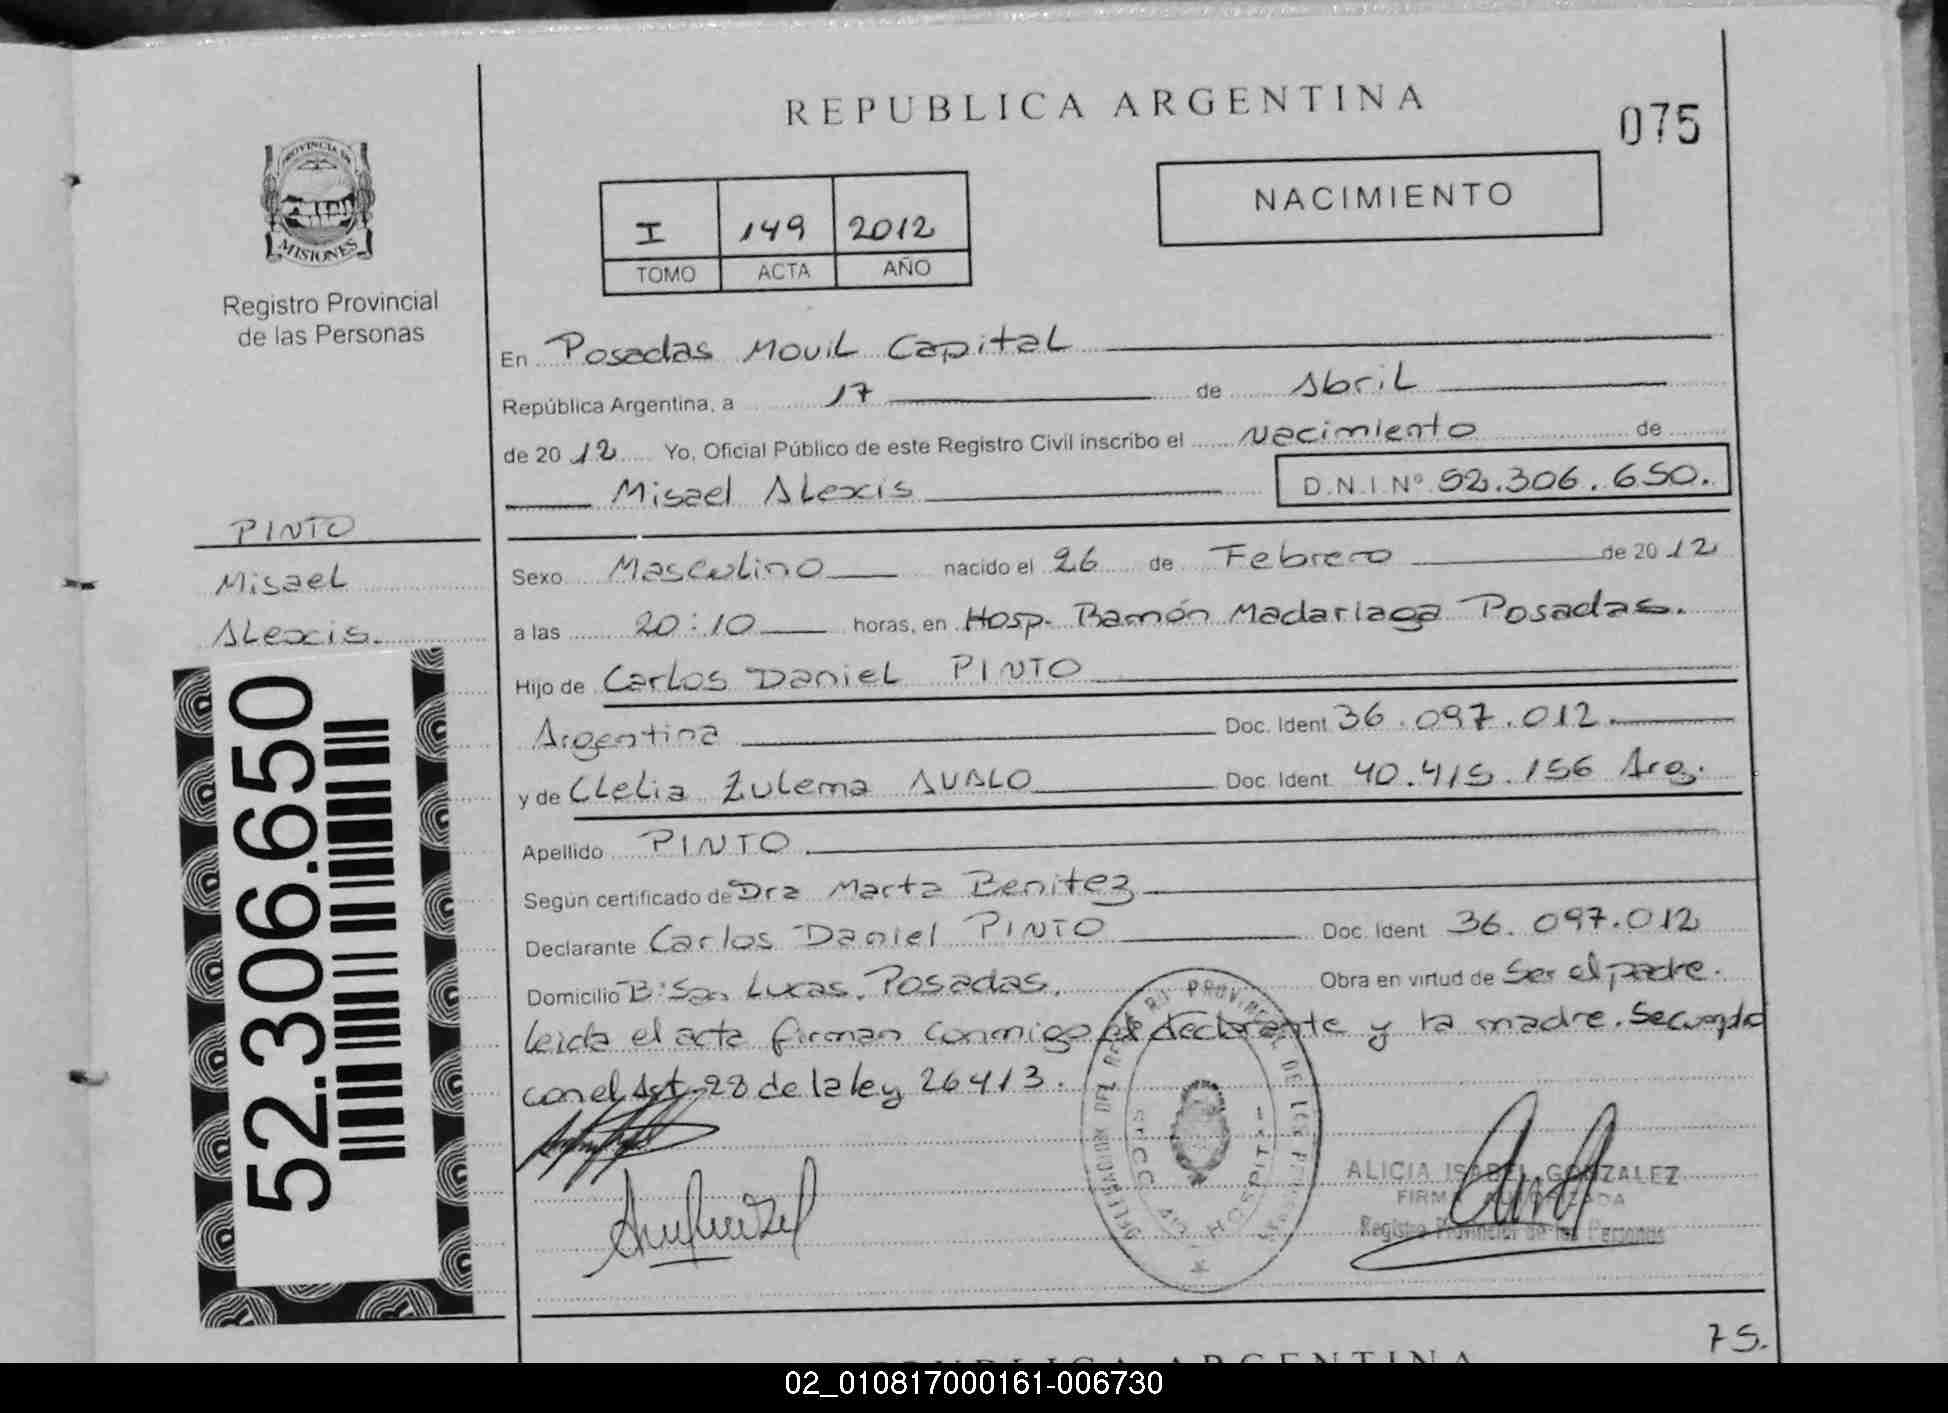 REPUBLICA ARGENTINA
075
PROVINCIA DE
MISIONES
Registro Provincial
de las Personas
I 149 2012
TOMO ACTA AÑO
NACIMIENTO
En Posadas Movil Capital
República Argentina, a 17 de Abril
de 2012 Yo, Oficial Público de este Registro Civil inscribo el Nacimiento de
Misael Alexis D.N.I.Nº 52.306.650.
PINTO
Misael
Alexis.
Sexo Masculino nacido el 26 de Febrero de 2012
a las 20:10 horas, en Hosp. Ramón Madariaga Posadas.
Hijo de Carlos Daniel PINTO
Argentina Doc. Ident. 36.097.012.
y de Clelia Zulema AVALO Doc. Ident. 40.415.156 Arg.
Apellido PINTO
Según certificado de Dra Marta Benitez
Declarante Carlos Daniel PINTO Doc. Ident 36.097.012
Domicilio B: San Lucas. Posadas. Obra en virtud de Ser el padre.
leida el acta firman conmigo el declarante y la madre. Secuerda
con el Art. 28 de la ley 26413.
52.306.650
HOSPIT
ALICIA ISABEL GONZALEZ
FIRMA AUTORIZADA
Registro Provincial de las Personas
75.
REPUBLICA ARGENTINA
02_010817000161-006730